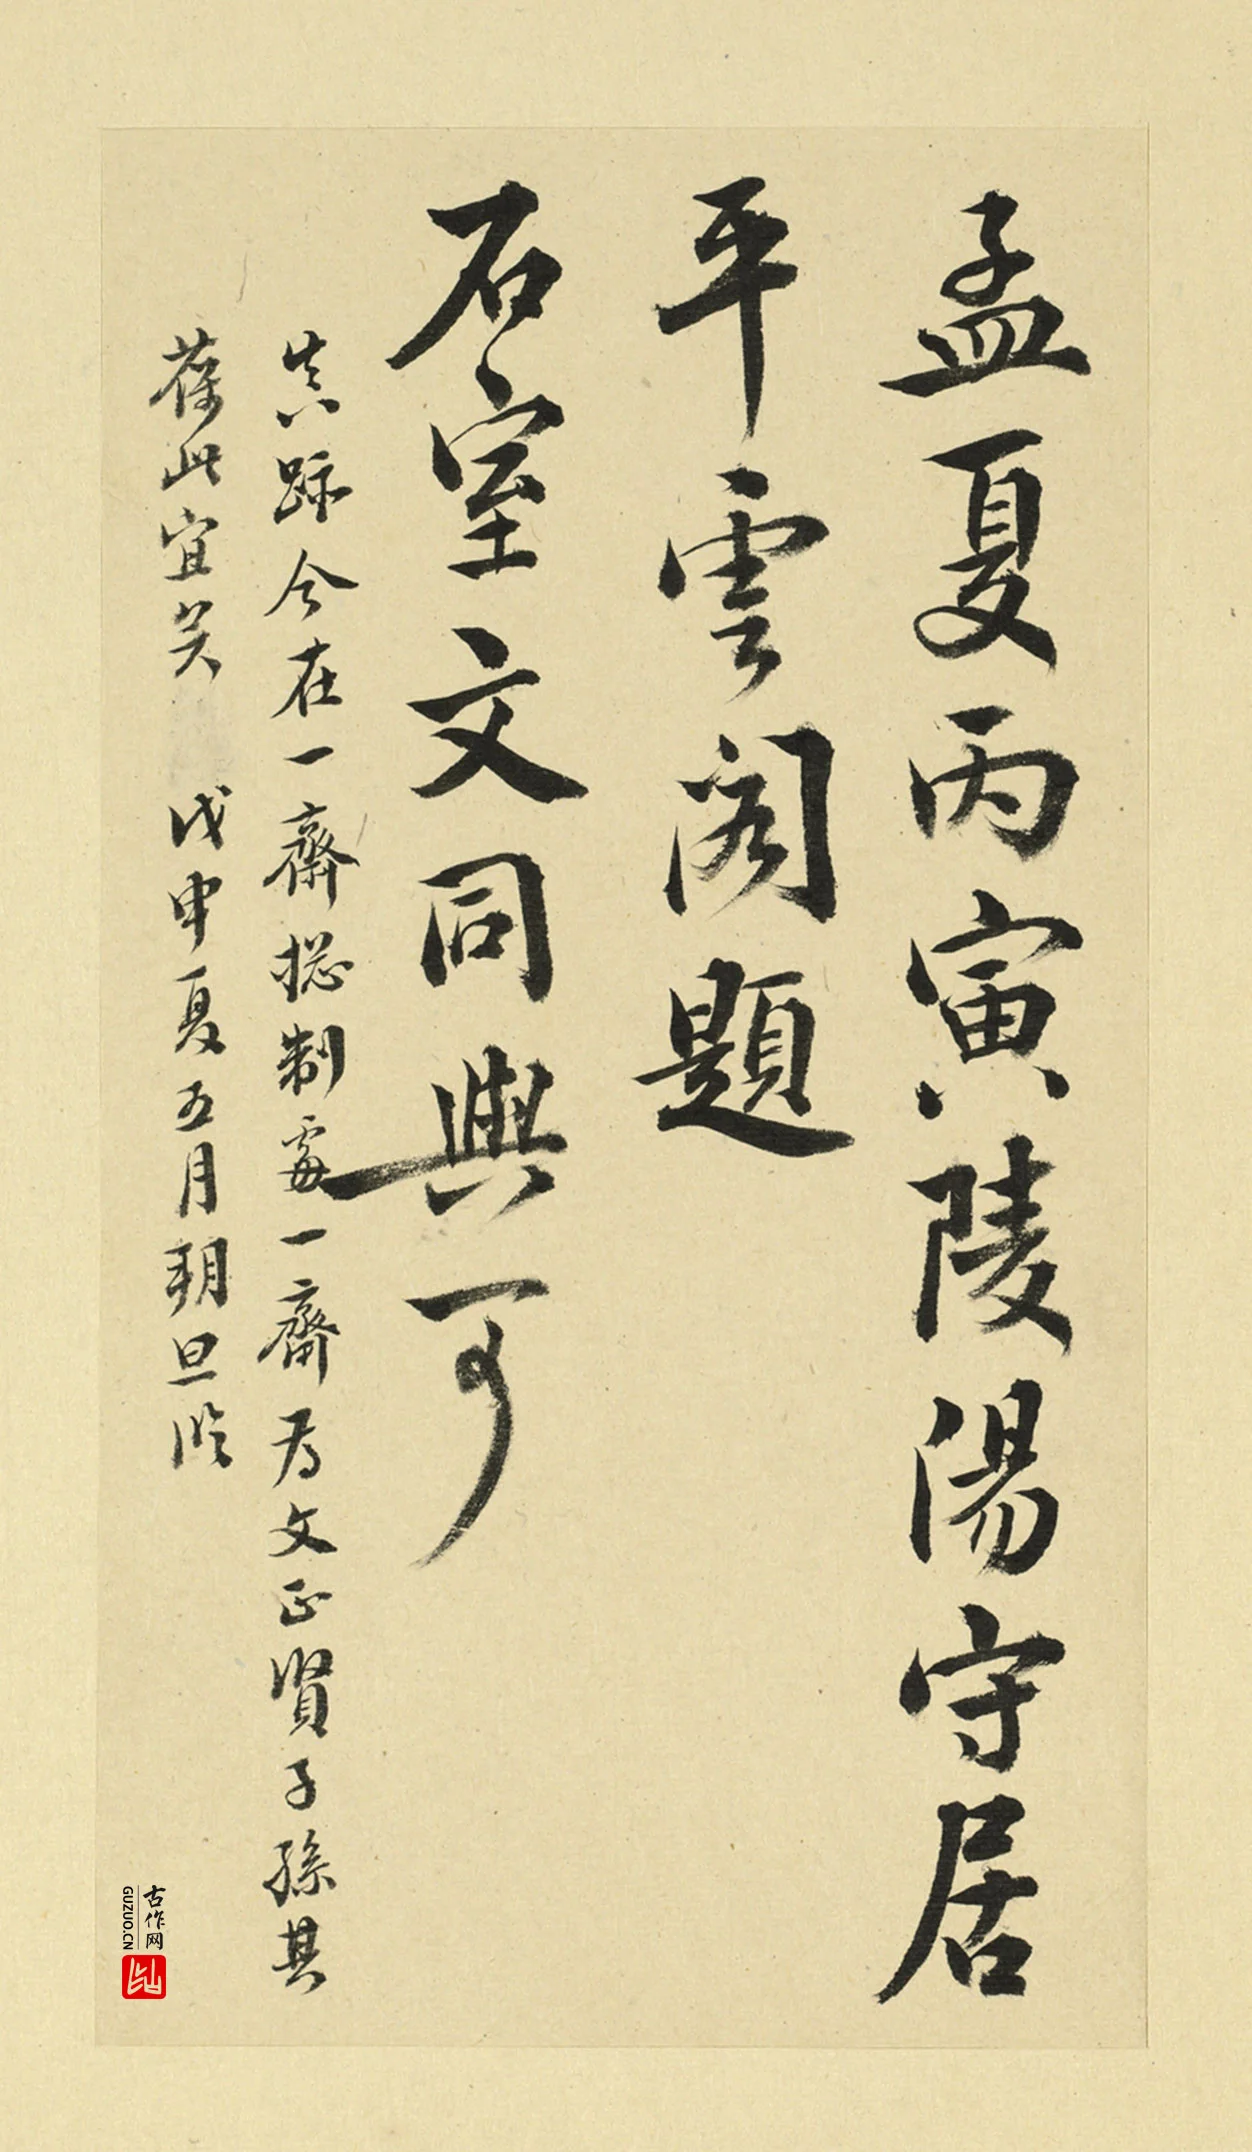 孟夏丙寅陵陽守居
平雲閣題
石室文同與可
真跡今在一齋總制處一齋爲文正賢子孫其
葆此宜矣 戊申夏五月朔旦临
古作网
GUZUO.CN